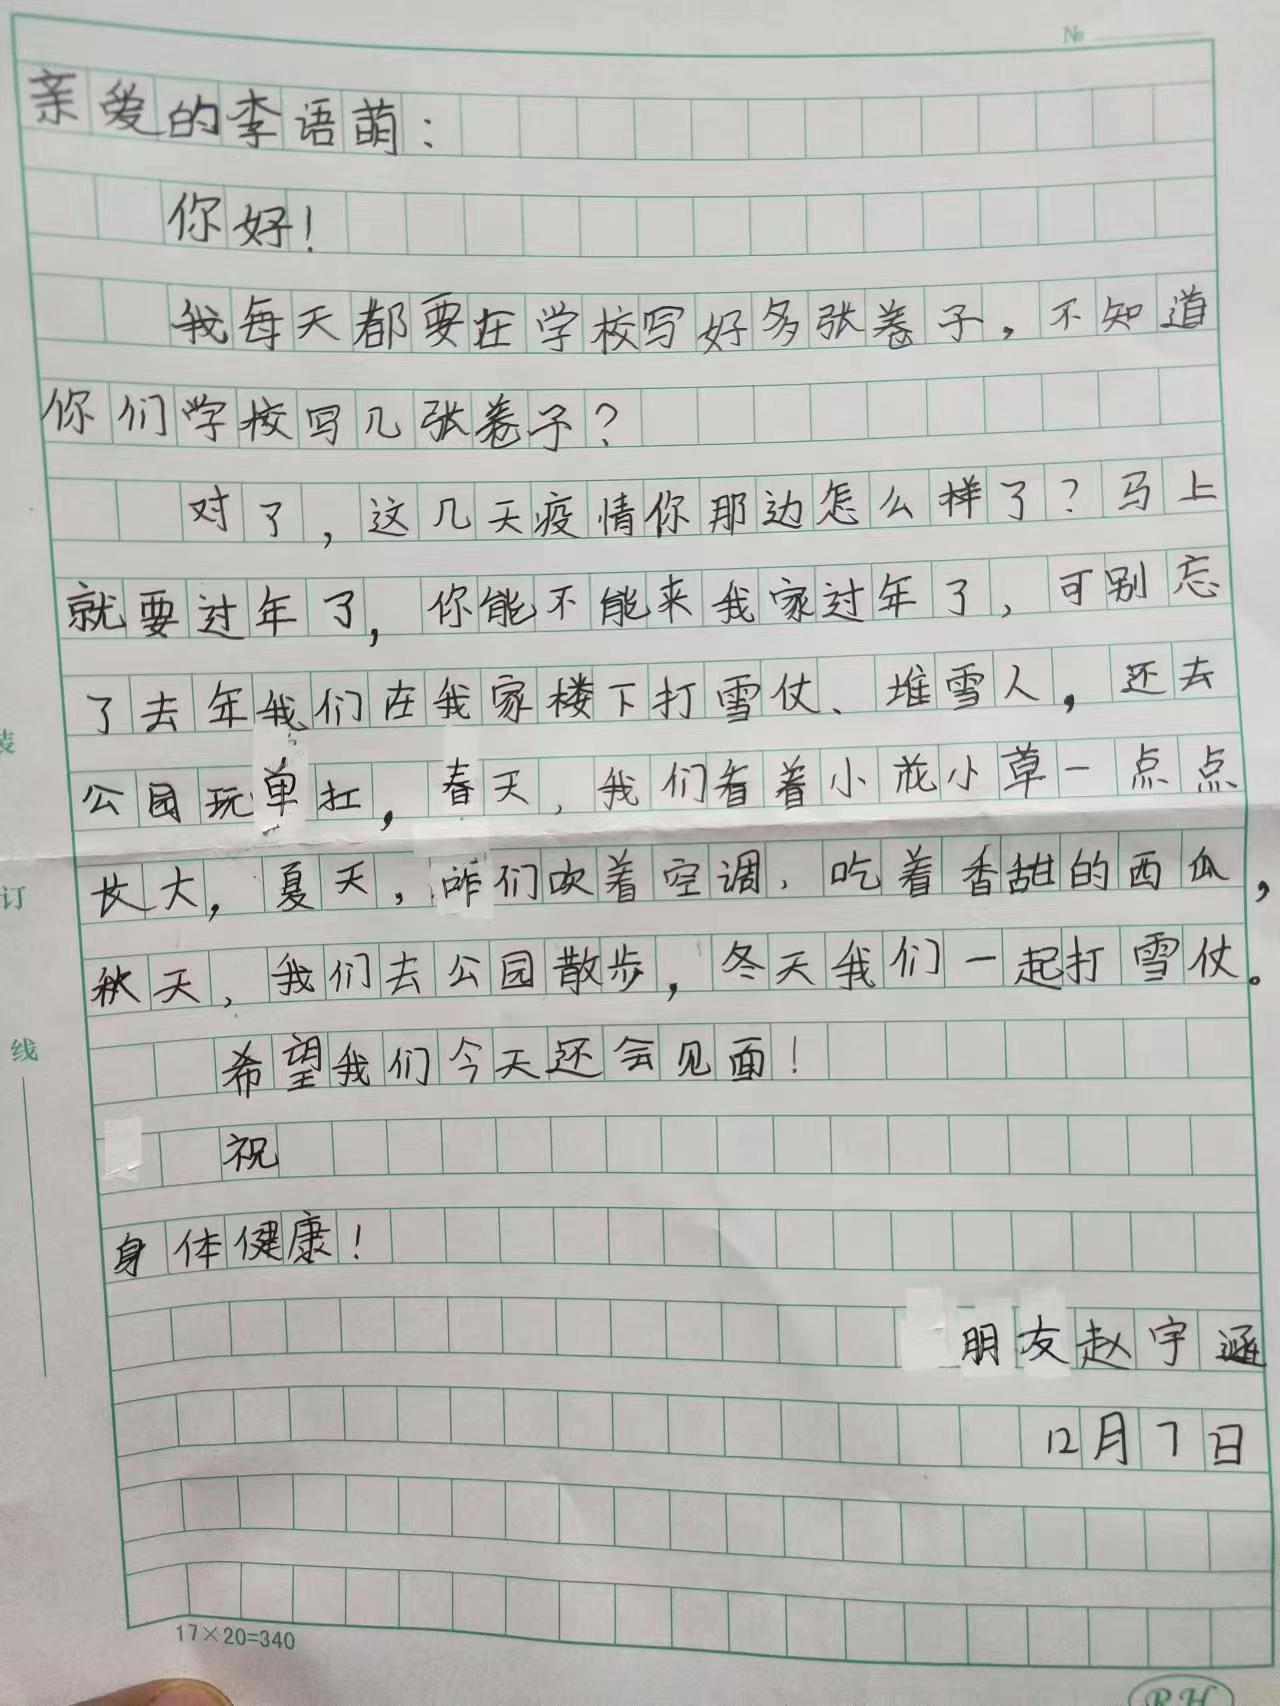 №
亲爱的李语萌：
你好！
我每天都要在学校写好多张卷子，不知道
你们学校写几张卷子？
对了，这几天疫情你那边怎么样了？马上
就要过年了，你能不能来我家过年了，可别忘
了去年我们在我家楼下打雪仗、堆雪人，还去
公园玩单扛，春天，我们看着小花小草一点点
长大，夏天，咱们吹着空调，吃着香甜的西瓜，
秋天，我们去公园散步，冬天我们一起打雪仗。
希望我们今天还会见面！
祝
身体健康！
朋友赵宇涵
12月7日
装
订
线
17×20=340
RH